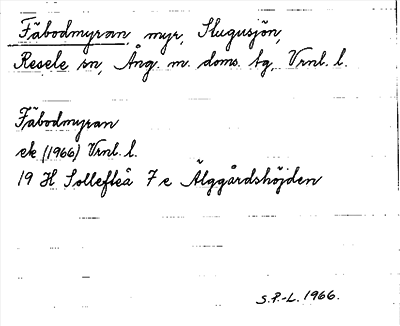 Fäbodmyran, myr, Slugusjön,
Resele sn, Ång. m. doms. tg, Vrnl. l.
Fäbodmyran
ek (1966) Vrnl. l.
19 H Sollefteå 7 e Älggårdshöjden
S.P.-L. 1966.